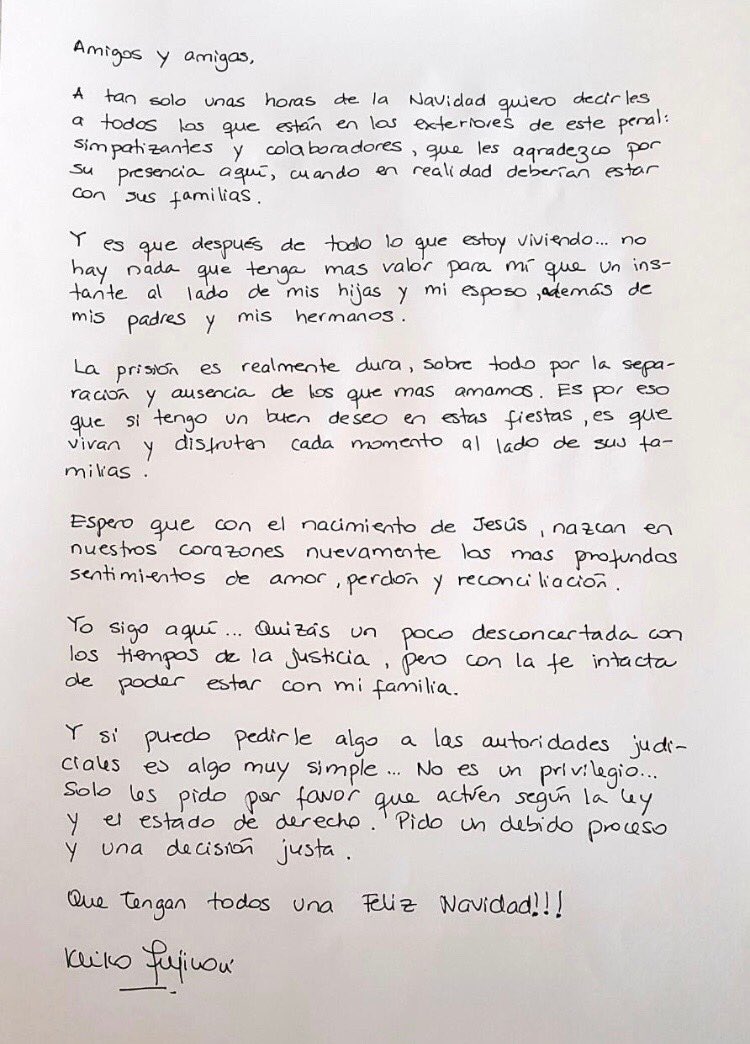 Amigos y amigas,
A tan solo unas horas de la Navidad quiero decirles
a todos los que están en los exteriores de este penal:
simpatizantes y colaboradores, que les agradezco por
su presencia aquí, cuando en realidad deberían estar
con sus familias.
Y es que después de todo lo que estoy viviendo... no
hay nada que tenga mas valor para mí que un ins-
tante al lado de mis hijas y mi esposo, además de
mis padres y mis hermanos.
La prisión es realmente dura, sobre todo por la sepa-
ración y ausencia de los que mas amamos. Es por eso
que si tengo un buen deseo en estas fiestas, es que
vivan y disfruten cada momento al lado de sus fa-
milias.
Espero que con el nacimiento de Jesús, nazcan en
nuestros corazones nuevamente los mas profundos
sentimientos de amor, perdón y reconciliación.
Yo sigo aquí... Quizás un poco desconcertada con
los tiempos de la justicia, pero con la fe intacta
de poder estar con mi familia.
Y si puedo pedirle algo a las autoridades judi-
ciales es algo muy simple... No es un privilegio...
Solo les pido por favor que actúen según la ley
y el estado de derecho. Pido un debido proceso
y una decisión justa.
Que tengan todos una Feliz Navidad!!!
Keiko Fujimori